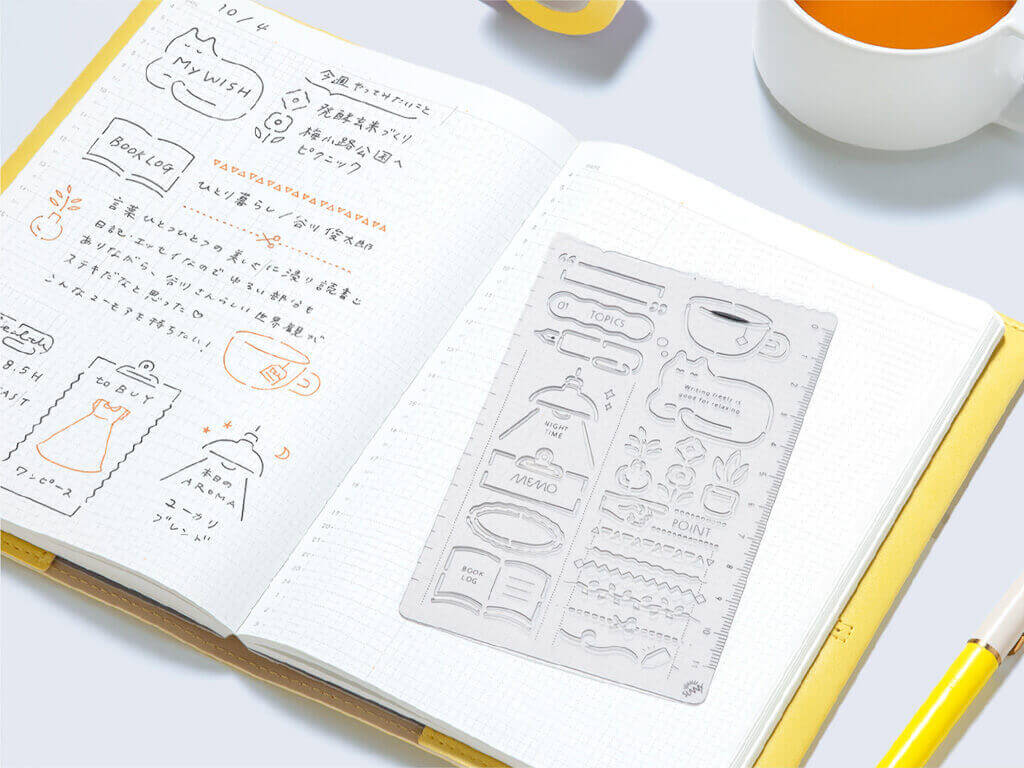 10/4
MY WISH
今週やってみたいこと
発酵玄米づくり
梅小路公園へ
ピクニック
BOOK LOG
ひとり暮らし/谷川俊太郎
言葉ひとつひとつの美しさに浸り読書♡
日記・エッセイなのでゆるい部分も
ありながら、谷川さんらしい世界観が
ステキだなと思った♡
こんなユーモアを持ちたい!
8.5H
to BUY
ワンピース
本日の
AROMA
ユーカリ
ブレンド
01 TOPICS
Writing freely is
good for relaxing
NIGHT
TIME
MEMO
POINT
BOOK
LOG